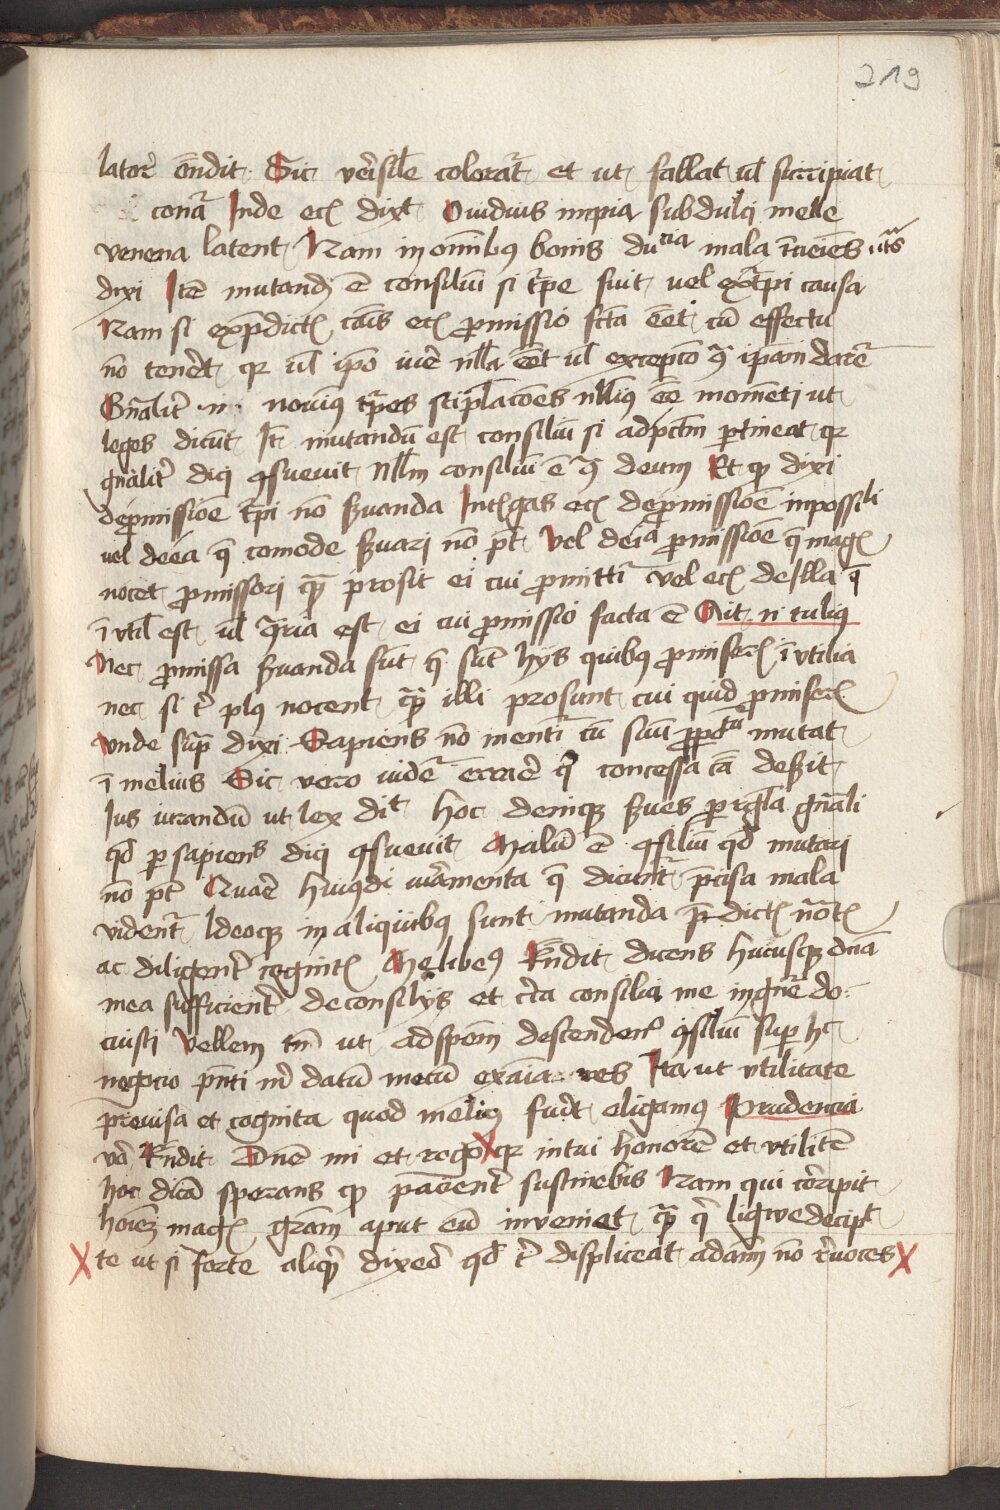 219
latorē ōndit Sic verisile coloraт̄ et ut fallat ul̄ surripiat
conaт̄ Inde eciā dixt Ouidius impia sub dulcj melle
venena latent Nam in omībus bonis mala īuenies
dixi Itē mutandū ē consiliū si t̄pe fuit uel ex t̄pi causa
Nam si expdictis cāis eciā ꝓmissio fc̄ta eēt cū effectu
nō teneret qr ul̄ ipo iure nll̄a eēt ul̄ excepto
Gn̄aliter n̄ nouius t̄pes stipl̄acōes nll̄ius eē momēti ut
leges dicūt It̄ mutandū est consiliū si ad pctm̄ ptineat qr
gn̄alit̄ dicj ꝯsueuit Nll̄m consiliū ē ꝯ̄ deum Et qꝫ dixi
de ꝓmissiōe t̄pi nō ẜuanda Int̄gas eciā de ꝓmissiōe impossili
uel de ea q̄ comode ẜuari nō pt̄ Vel de ea ꝓmissiōe q̄ magis
nocet ꝓmissori qꝫ̄ prosit ei cui ꝓmittit̄ vel eciā de illa q̄
ī vtil̄ est ul̄ ꝯ̄ria est ei cui ꝓmissio facta ē Ait n̄ tulius
Nec ꝓmissa ẜuanda sūt q̄ sūt hijs quibus ꝓmiseris ī vtilia
nec si t̄ plus nocent qꝫ̄ illi prosunt cui quid ꝓmiseris
Vnde sup̄ dixi Sapiens nō mentit̄ cū suū ꝓp̄oitū mutat
ī melius Sic vero videt̄ errare qꝫ concessa cā deẜit
Jus iurandū ut lex dit̄ hoc denicꝫ ẜues p rgl̄a gn̄ali
qd̄ p sapiens dicj ꝯsueuit Malū ē ꝯsiliū qd̄ mutari
nō pt̄ Quare huiusdi iur̄amenta q̄ dicunt̄ p̄cisa mala
vident̄ Ideocꝫ in aliquibus sunt mutanda p̄dictis nōtis
ac diligent̄ cognitis Melibeus Rn̄dit dicens hucuscꝫ dn̄a
mea sufficient̄ de consilijs et circa consilia me in gn̄e do-
cuisti Vellem tn̄ ut ad spem̄ descenden̄s ꝯsiliū sup hoc
negocio p̄nti m̄ datū mecū exāia res Ita ut vtilitate
p̄reuisa et cognita quod melius fuerit eligamus Prudencia
vō Rn̄dit Dn̄e mi et rogo X qr intui honorē et vtilitē
hoc dicā sperans qꝫ pacient̄ sustinebis Nam qui corripit
hoiēꝫ magis gr̄am aput eū inueniet qꝫ̄ q̄ ligwe decipit
X te ut si forte aliqꝫ̄ dixero qd̄ t̄ displiceat ad aīm nō reuoces X